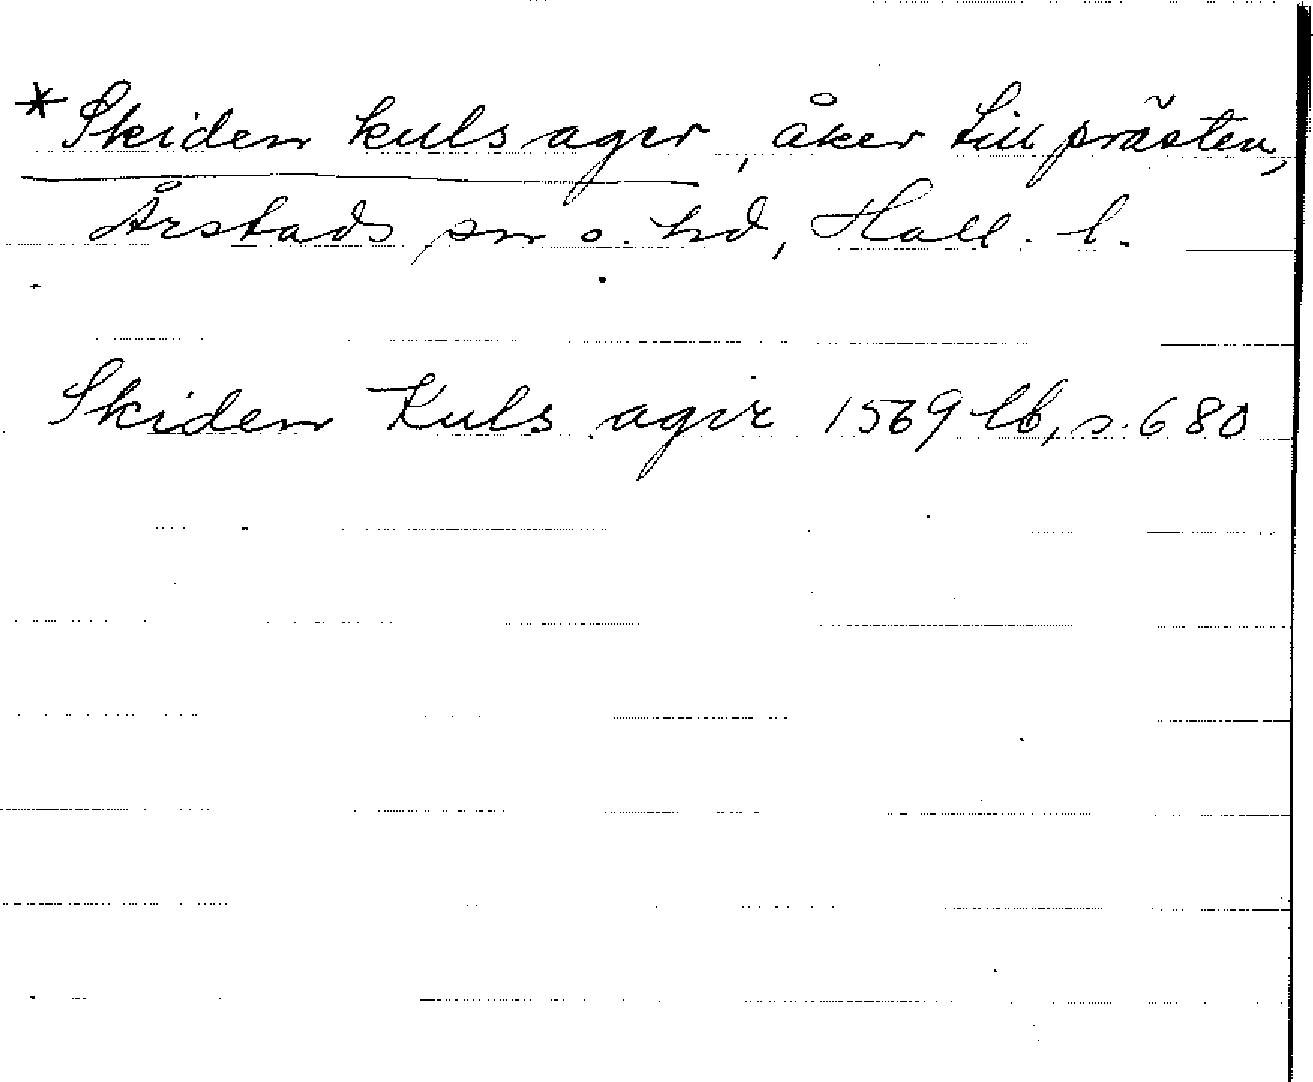 *Skiden kuls ager, åker till prästen,
Årstads sn o. hd, Hall. l.
Skiden Kuls ager 1569 lb, s. 680